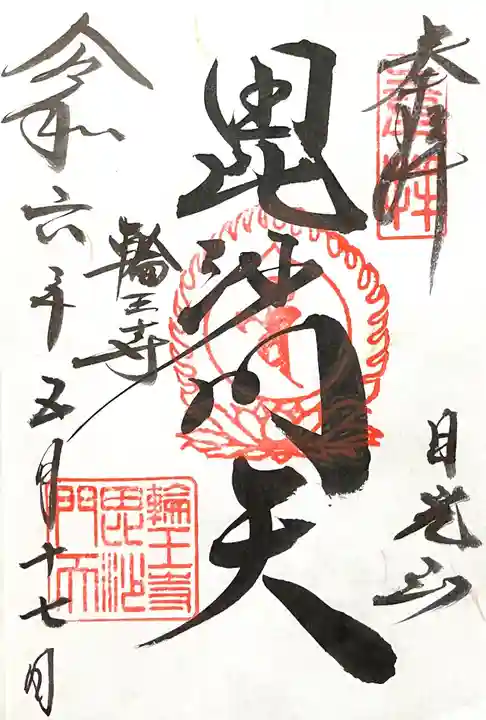 奉拝
日光山
毘沙門天
輪王寺
令和六年五月十七日
奉拝
輪王寺
毘沙
門天